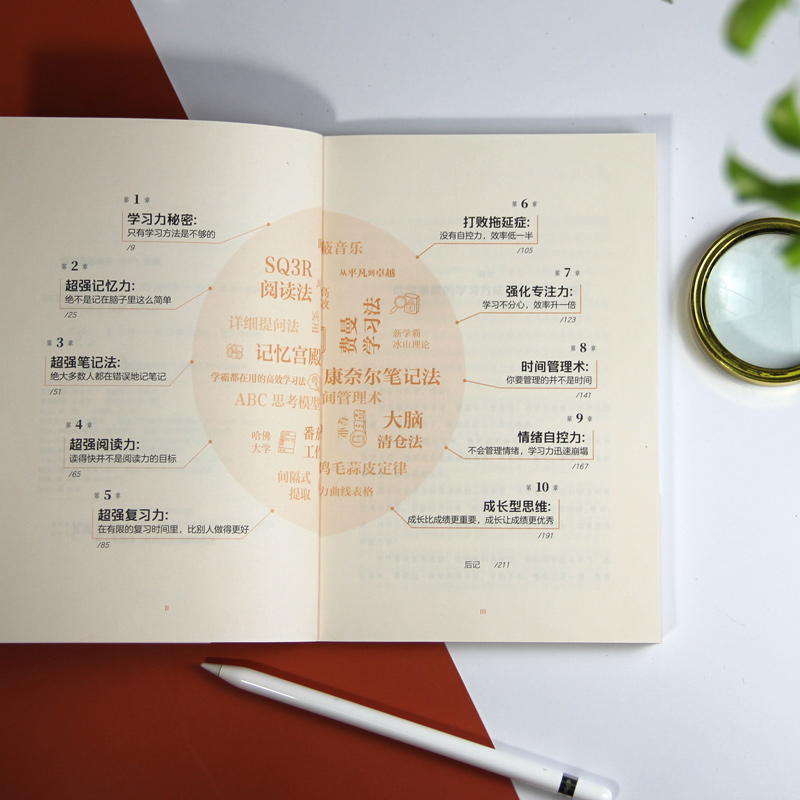 第 1 章
学习力秘密:
只有学习方法是不够的
/9
第 2 章
超强记忆力:
绝不是记在脑子里这么简单
/25
第 3 章
超强笔记法:
绝大多数人都在错误地记笔记
/51
第 4 章
超强阅读力:
读得快并不是阅读力的目标
/65
第 5 章
超强复习力:
在有限的复习时间里，比别人做得更好
/85
SQ3R
阅读法
详细提问法
记忆宫殿
学霸都在用的高效学习法
ABC 思考模型
哈佛
大学
间隔式
提取
蔽音乐
从平凡到卓越
费曼
学习法
新学霸
冰山理论
康奈尔笔记法
间管理术
大脑
清仓法
鸡毛蒜皮定律
力曲线表格
第 6 章
打败拖延症:
没有自控力，效率低一半
/105
第 7 章
强化专注力:
学习不分心，效率升一倍
/123
第 8 章
时间管理术:
你要管理的并不是时间
/141
第 9 章
情绪自控力:
不会管理情绪，学习力迅速崩塌
/167
第 10 章
成长型思维:
成长比成绩更重要，成长让成绩更优秀
/191
后记 /211
II
III